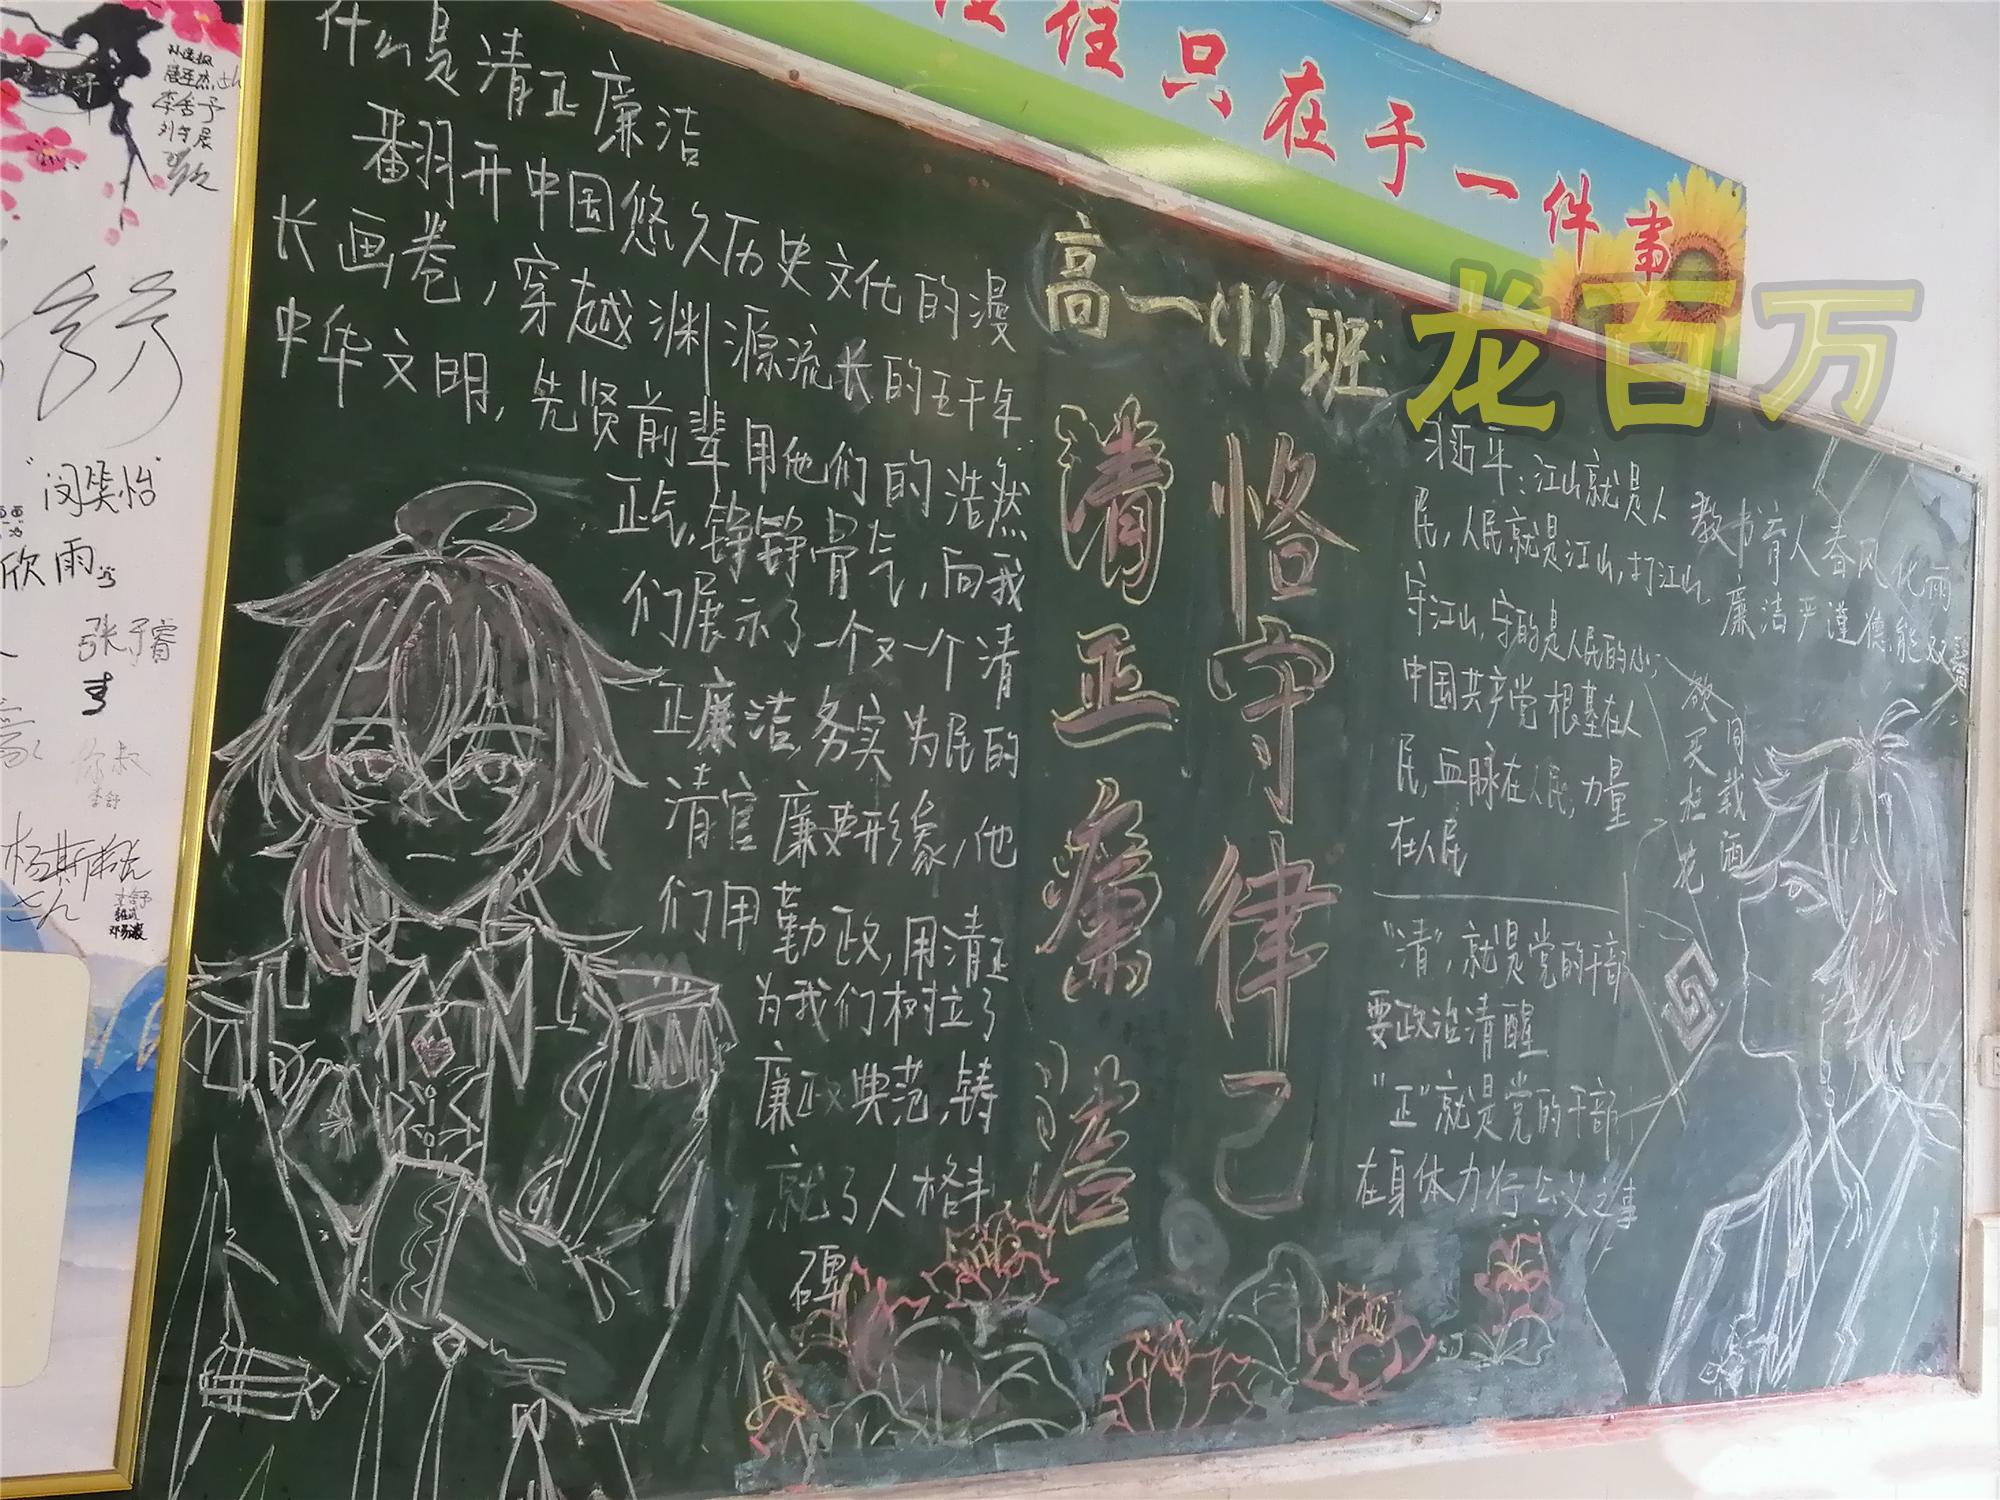 住只在于一件事
龙百万
什么是清正廉洁
翻开中国悠久历史文化的漫
长画卷，穿越渊源流长的五千年
中华文明，先贤前辈用他们的浩然
正气，铮铮骨气，向我
们展示了一个又一个清
正廉洁，务实为民的
清官廉要形缘，他
们用勤政，用清正
为我们树立了
廉政典范，铸
就了人格丰
碑
高一(1)班
清正廉洁
恪守律己
习近平：江山就是人
民，人民就是江山，打江山，
守江山，守的是人民的心，
中国共产党根基在人
民，血脉在人民，力量
在人民
"清"，就是党的干部
要政治清醒
"正"就是党的干部
在身体力行公义之事
教书育人春风化雨
廉洁严谨德能双馨
欲买桂花
同载酒
李舍予
闵笑怡
欣雨
张予睿